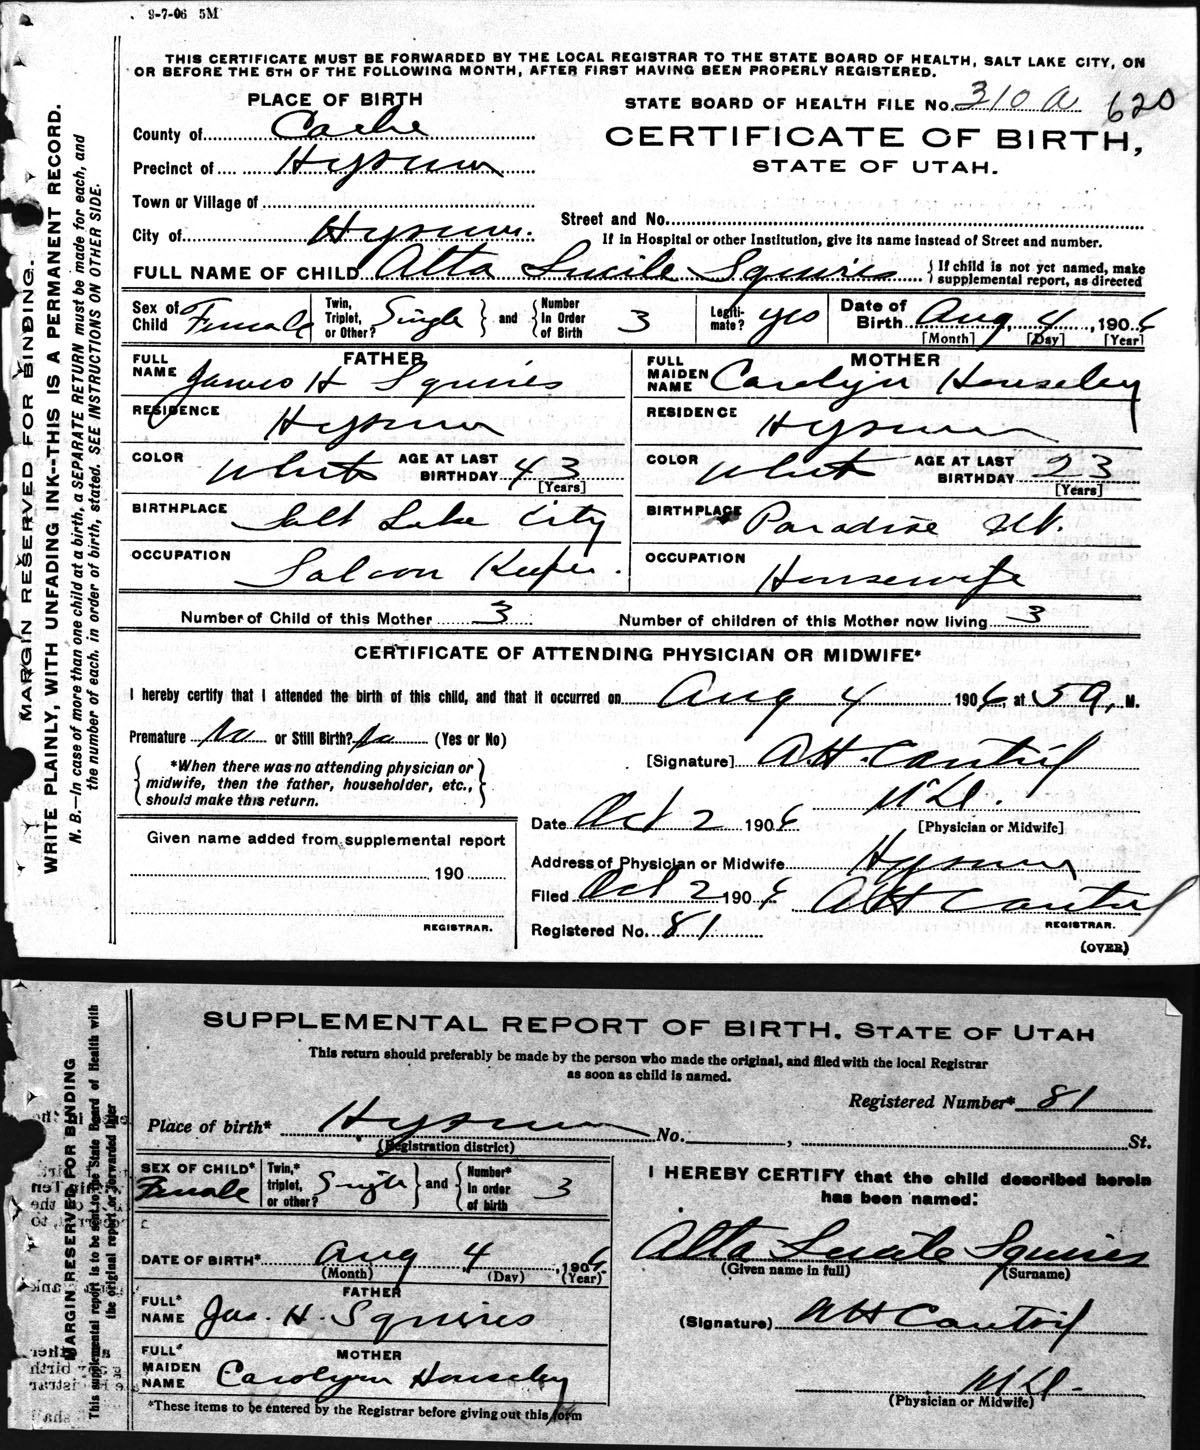 9-7-06 5M
THIS CERTIFICATE MUST BE FORWARDED BY THE LOCAL REGISTRAR TO THE STATE BOARD OF HEALTH, SALT LAKE CITY, ON
OR BEFORE THE 5TH OF THE FOLLOWING MONTH, AFTER FIRST HAVING BEEN PROPERLY REGISTERED.
MARGIN RESERVED FOR BINDING.
WRITE PLAINLY, WITH UNFADING INK--THIS IS A PERMANENT RECORD.
N. B.--In case of more than one child at a birth, a SEPARATE RETURN must be made for each, and
the number of each, in order of birth, stated. SEE INSTRUCTIONS ON OTHER SIDE.
PLACE OF BIRTH
STATE BOARD OF HEALTH FILE No. 310 A 620
County of Cache
CERTIFICATE OF BIRTH,
STATE OF UTAH.
Precinct of Hyrum
Town or Village of
Street and No.
City of Hyrum.
If in Hospital or other Institution, give its name instead of Street and number.
FULL NAME OF CHILD Alta Lucile Squires { If child is not yet named, make
supplemental report, as directed
Sex of Child Female
Twin, Triplet, or Other? Single } and { Number In Order of Birth 3
Legiti-mate? yes
Date of Birth Aug. 4, 1906
[Month] [Day] [Year]
FATHER
FULL NAME James H Squires
MOTHER
FULL MAIDEN NAME Carolyn Housley
RESIDENCE Hyrum
RESIDENCE Hyrum
COLOR White AGE AT LAST BIRTHDAY 43 [Years]
COLOR White AGE AT LAST BIRTHDAY 23 [Years]
BIRTHPLACE Salt Lake City
BIRTHPLACE Paradise Ut.
OCCUPATION Saloon Keeper.
OCCUPATION Housewife
Number of Child of this Mother 3
Number of children of this Mother now living 3
CERTIFICATE OF ATTENDING PHYSICIAN OR MIDWIFE*
I hereby certify that I attended the birth of this child, and that it occurred on Aug 4 1906, at 5 a, M.
Premature No or Still Birth? No (Yes or No)
[Signature] A.H. Cantril
M.D.
[Physician or Midwife]
{ *When there was no attending physician or
midwife, then the father, householder, etc.,
should make this return. }
Date Oct 2 1906
Given name added from supplemental report
190
REGISTRAR.
Address of Physician or Midwife Hyrum
Filed Oct 2 1906 AH Cantril
REGISTRAR.
Registered No. 81
(OVER)
SUPPLEMENTAL REPORT OF BIRTH, STATE OF UTAH
This return should preferably be made by the person who made the original, and filed with the local Registrar
as soon as child is named.
MARGIN RESERVED FOR BINDING
This supplemental report is to be sent to the State Board of Health with
the original report or forwarded later
Registered Number* 81
Place of birth* Hyrum No. , St.
(Registration district)
SEX OF CHILD* Female
Twin,* triplet, or other? Single } and { Number* in order of birth 3
I HEREBY CERTIFY that the child described herein
has been named:
Alta Lucile Squires
(Given name in full) (Surname)
DATE OF BIRTH* Aug 4, 1906
(Month) (Day) (Year)
FATHER
FULL* NAME Jas. H. Squires
(Signature) AH Cantril
MOTHER
FULL* MAIDEN NAME Carolynn Housley
M.D.
(Physician or Midwife)
*These items to be entered by the Registrar before giving out this form